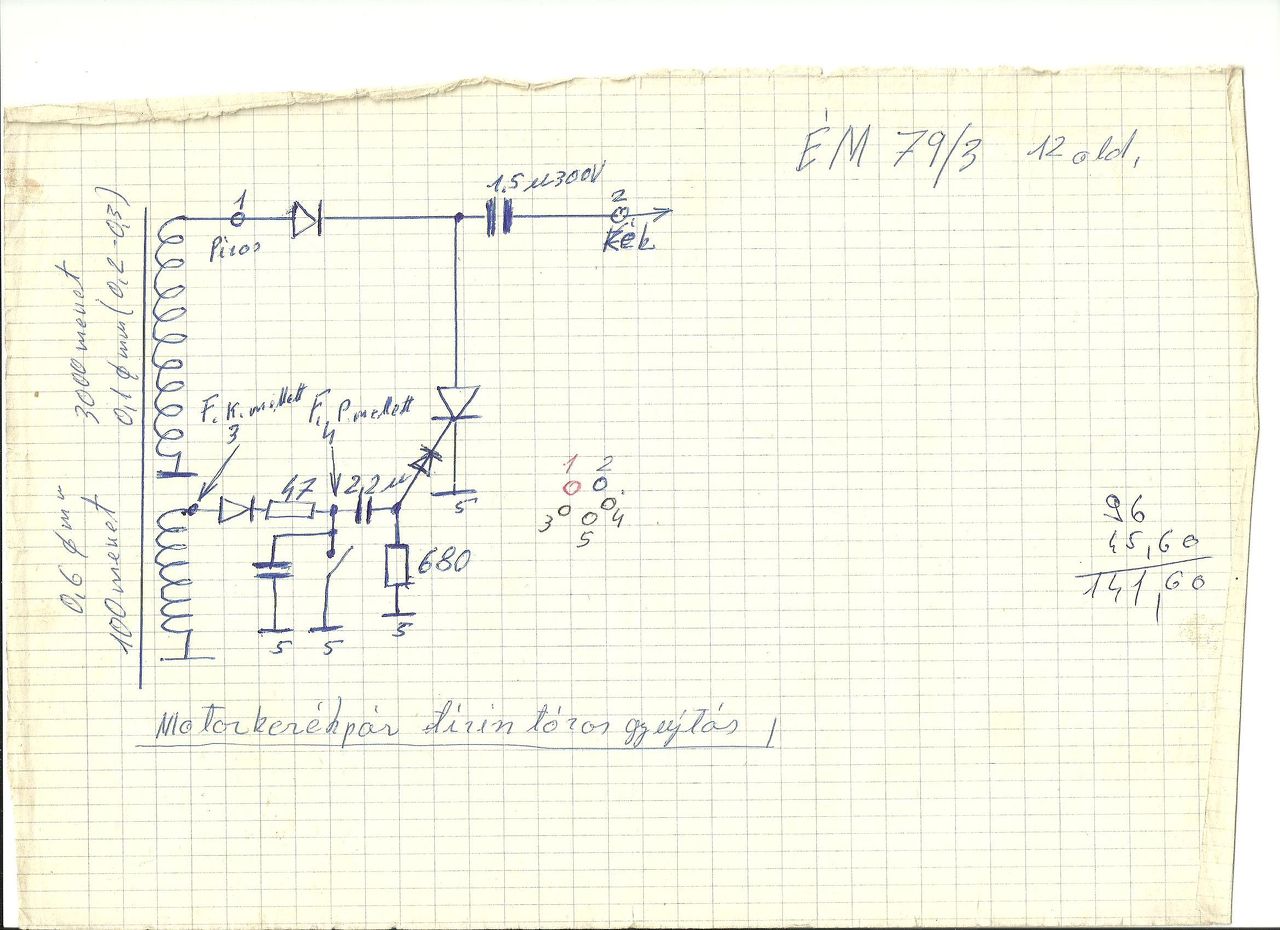 ÉM 79/3 12 old.
1,5 µ 300V
1
2
Piros
Kék
3000 menet
0,1 ϕ mm (0,2-0,3)
F. K. mellett
3
F. P. mellett
4
47
2,2 µ
5
1 2
3 4
5
0,6 ϕ mm
100 menet
680
5
5
5
96
45,60
141,60
Motorkerékpár tirisztoros gyujtás